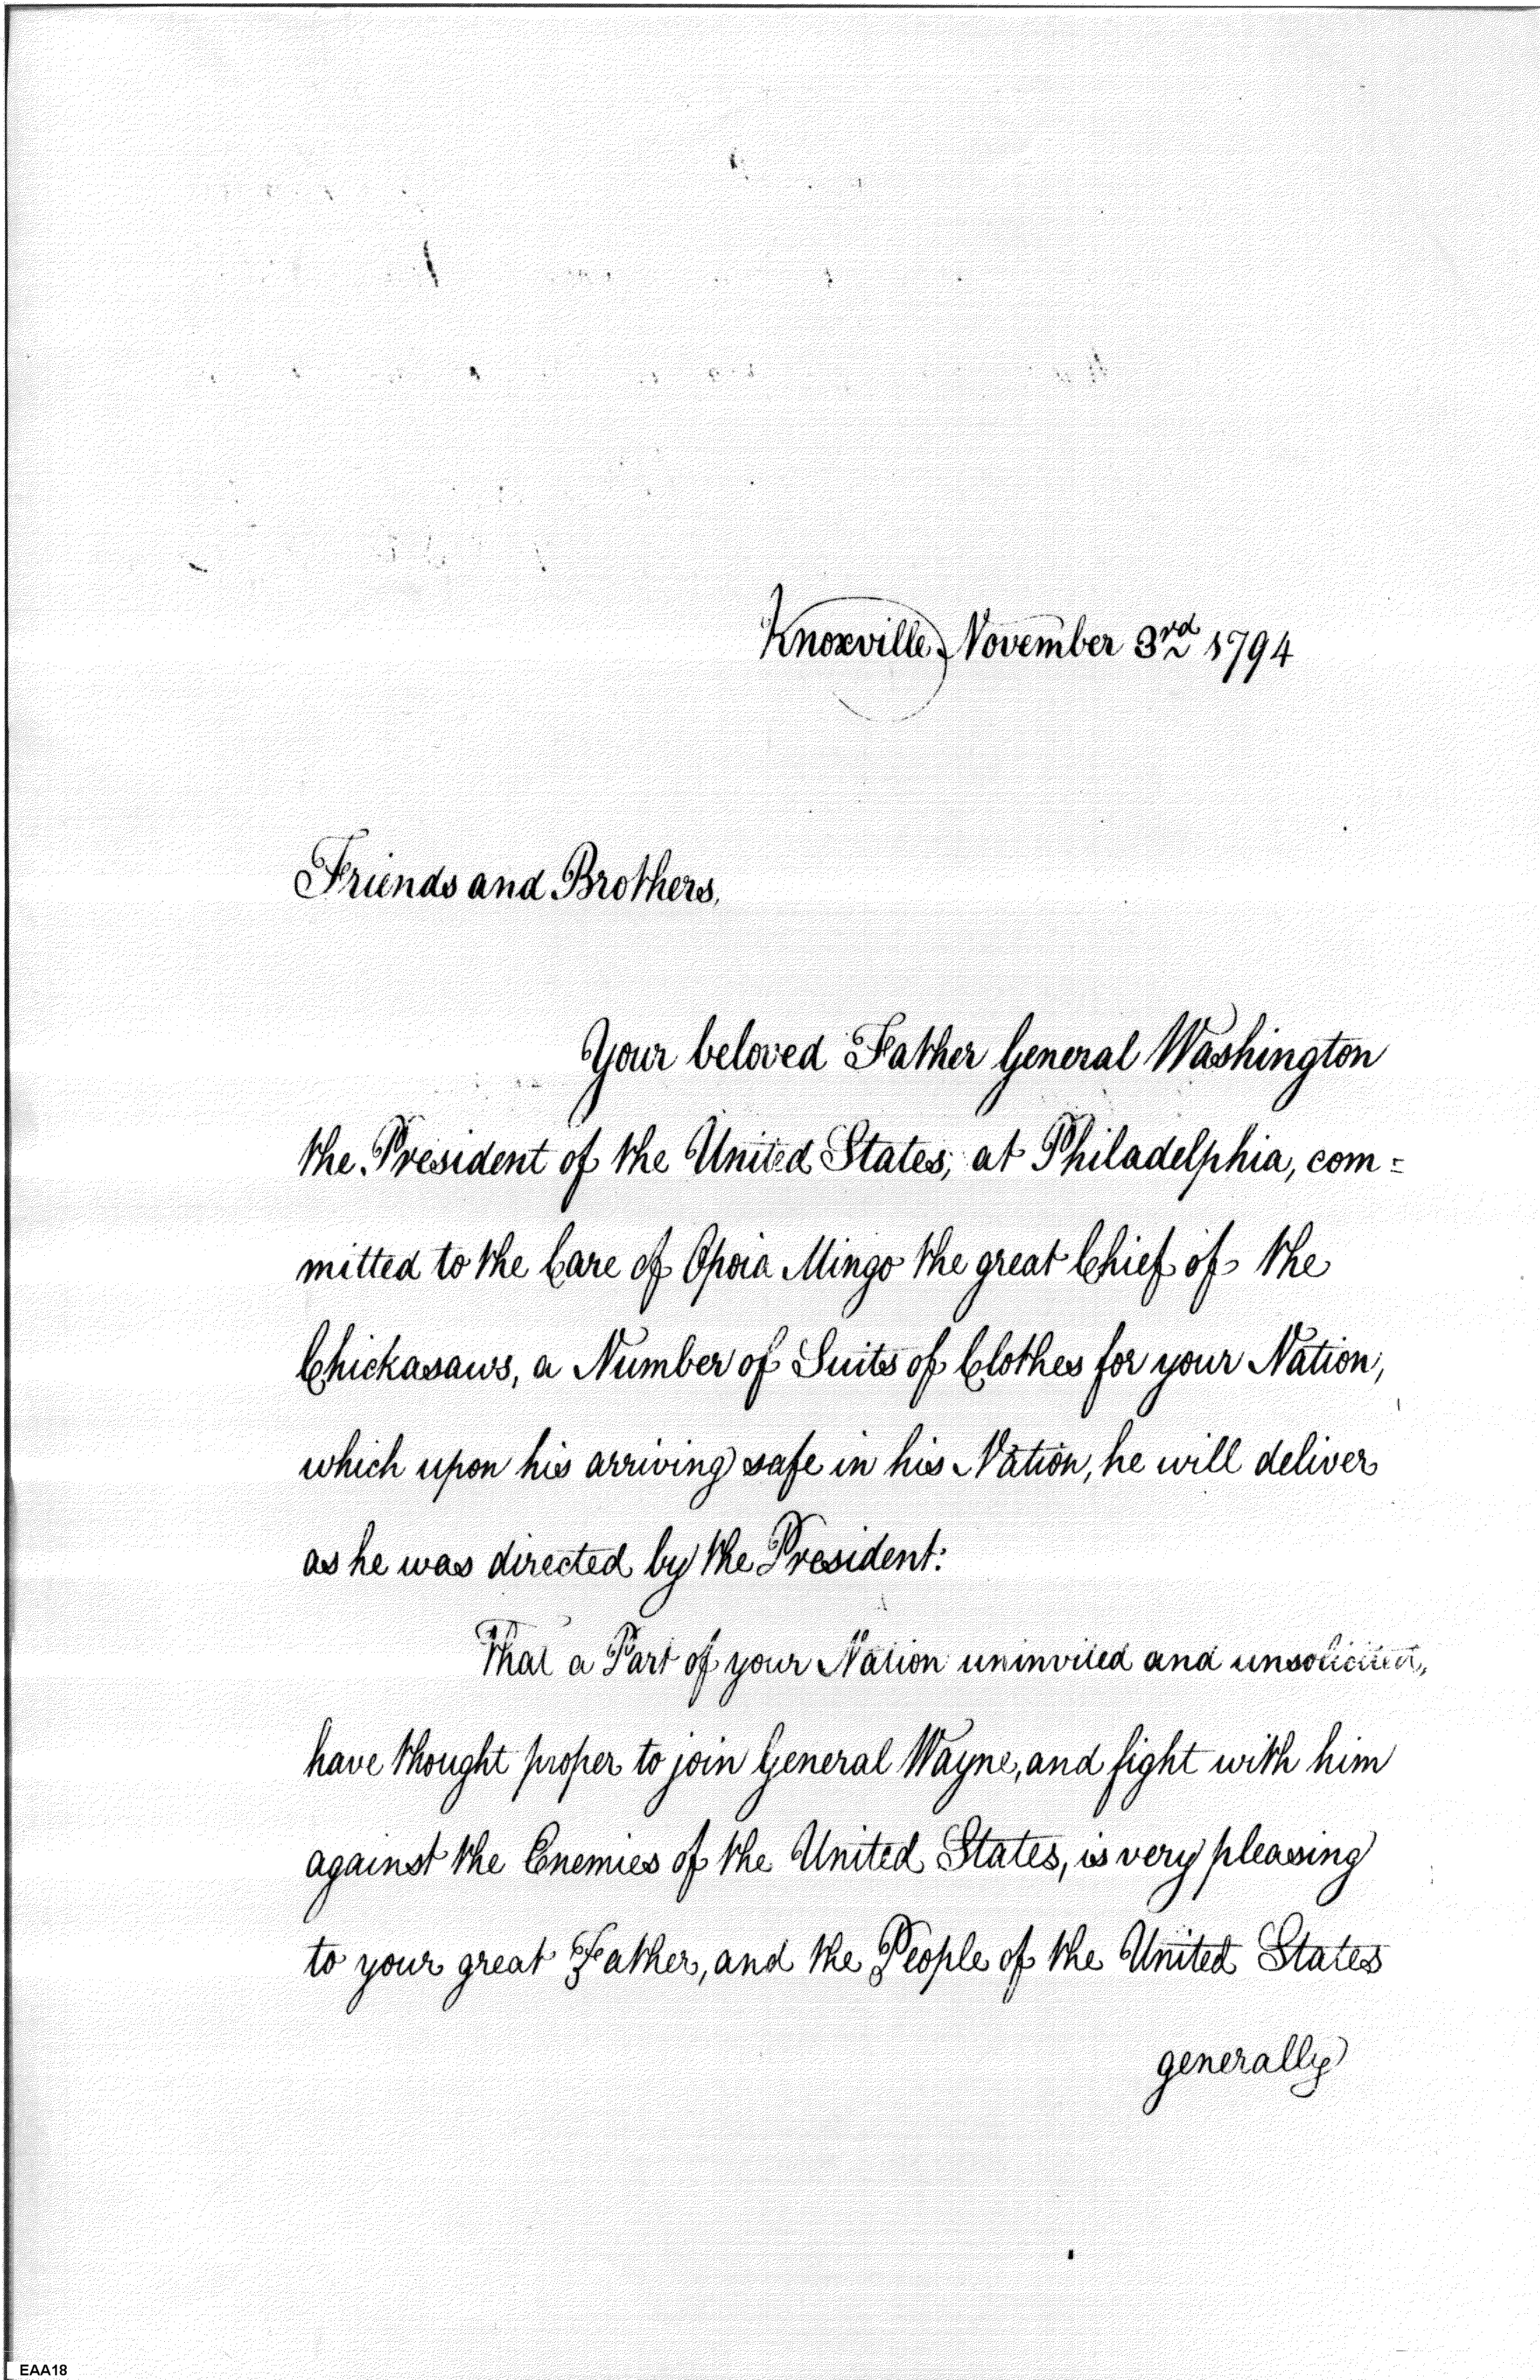 Knoxville, November 3rd 1794
Friends and Brothers,
Your beloved Father General Washington
the President of the United States, at Philadelphia, com=
mitted to the Care of Opoia Mingo the great Chief of the
Chickasaws, a Number of Suits of Clothes for your Nation,
which upon his arriving safe in his Nation, he will deliver
as he was directed by the President:
That a Part of your Nation uninvited and unsolicited,
have thought proper to join General Wayne, and fight with him
against the Enemies of the United States, is very pleasing
to your great Father, and the People of the United States
generally
EAA18